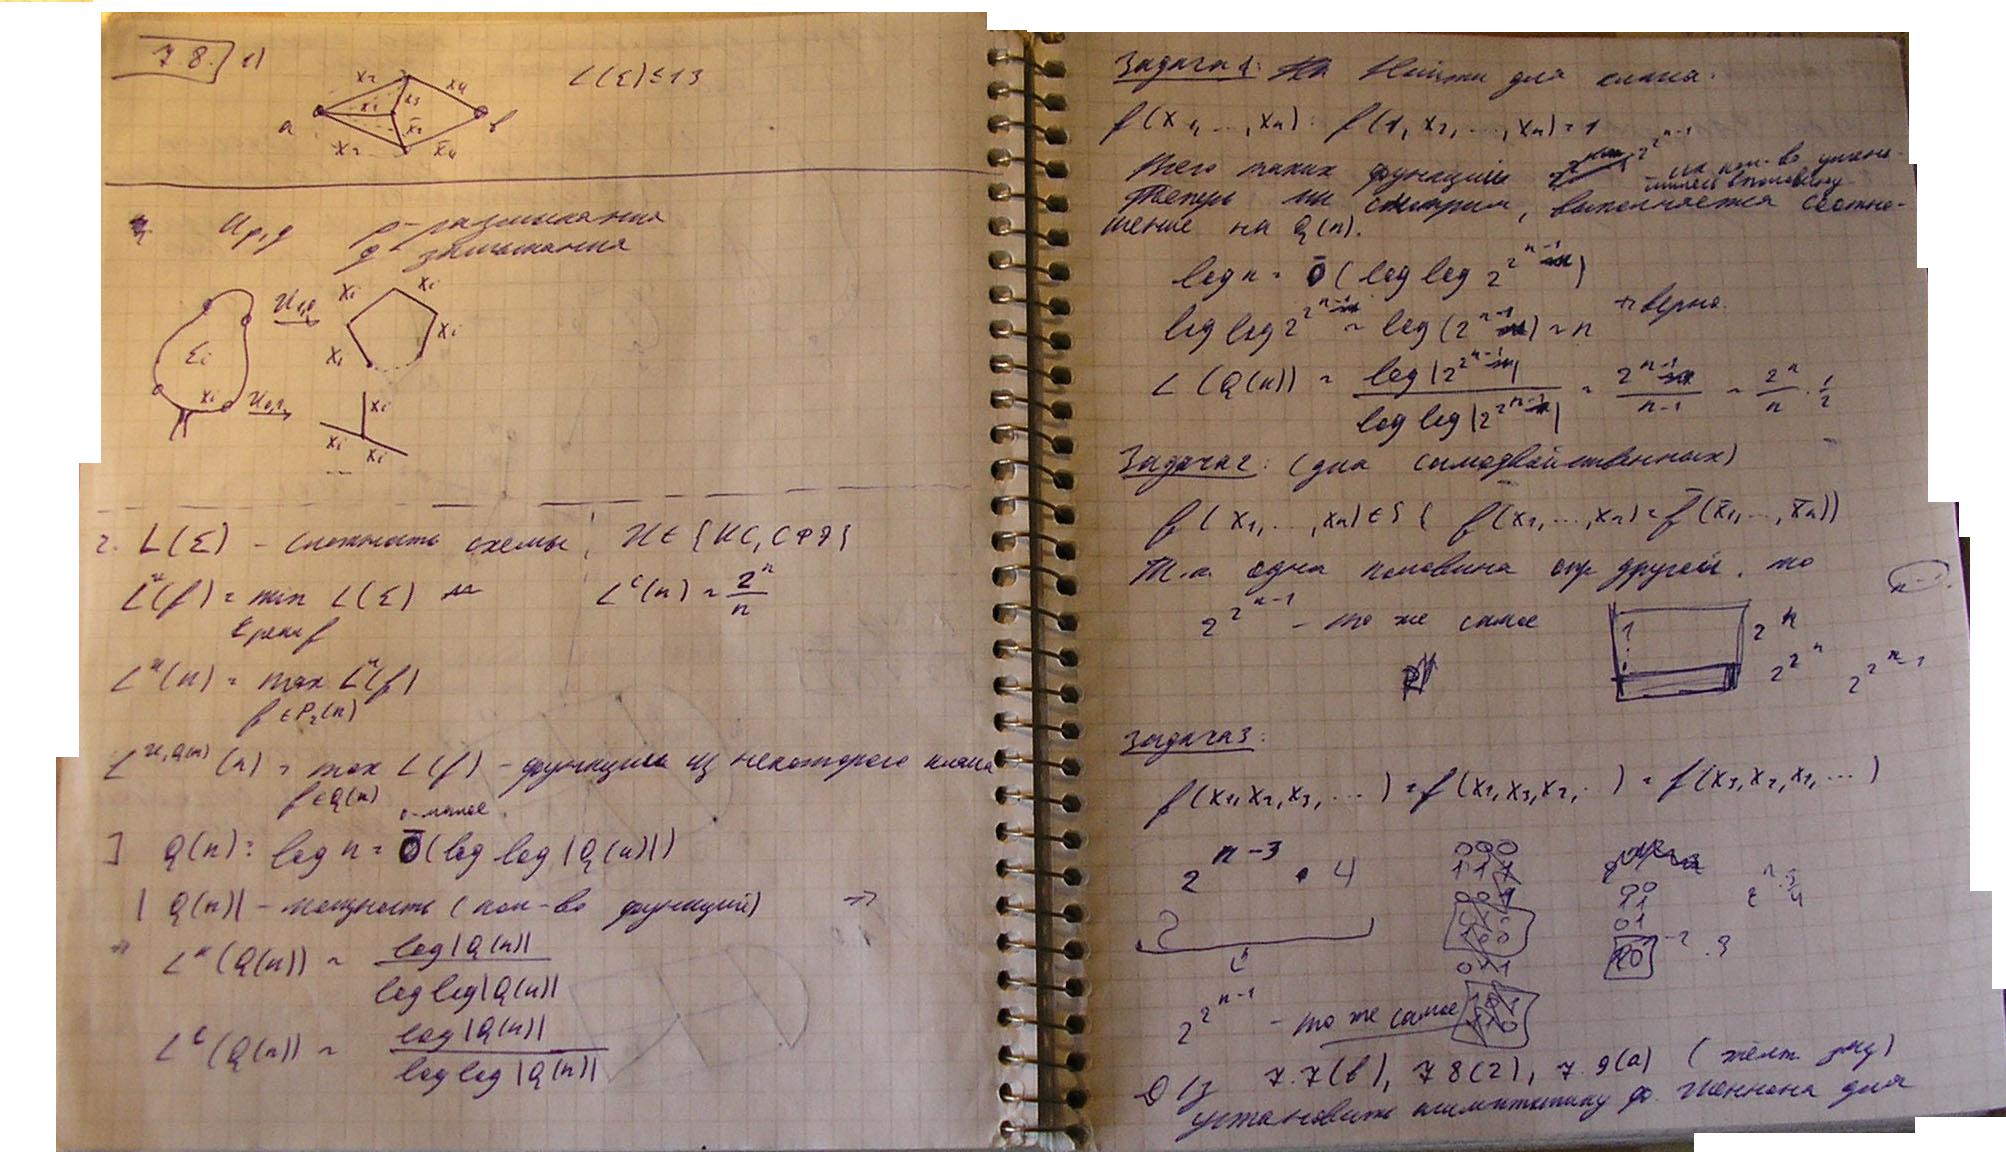 7 8.] 1)
x₂ x₄ x₁ x₃ x̄₂ x̄₄
a b
L(Σ)≤13
U p,q p-размыкания
q- замыкания
Σi
xi xi xi xi
xi xi xi xi
2. L(Σ) - сложность схемы, U ∈ {КС, СФЭ}
Lᵁ(f) = min L(Σ)
Σ реал f
Lᶜ(n) ~ 2ⁿ/n
Lᵁ(n) = max Lᵁ(f)
f ∈ P₂(n)
L^{U,Q(n)}(n) = max L(f) - функция из некоторого класса
f∈Q(n)
о-малое
] Q(n): log n = ō(log log |Q(n)|)
|Q(n)| - мощность (кол-во функций) →
→ Lᴷ(Q(n)) ~ log|Q(n)| / log log|Q(n)|
Lᶜ(Q(n)) ~ log|Q(n)| / log log|Q(n)|
Задача 1: Найти для класса:
f(x₁, ..., xₙ): f(1, x₂, ..., xₙ) = 1
Всего таких функций 2^{2^{n-1}} - их кол-во уменьшилось вполовину
Теперь смотрим, выполняется соотно-
шение на Q(n).
log n = ō(log log 2^{2^{n-1}})
log log 2^{2^{n-1}} ~ log(2^{n-1}) ~ n → верно.
L(Q(n)) ~ log|2^{2^{n-1}}| / log log|2^{2^{n-1}}| ~ 2^{n-1}/(n-1) ~ 2ⁿ/n · 1/2
Задача 2: (для самодвойственных)
f(x₁, ..., xₙ) ∈ S { f(x₁, ..., xₙ) = f̄(x̄₁, ..., x̄ₙ) }
Т.к. одна половина опр другой, то
2^{2^{n-1}} - то же самое
2ⁿ
2^{2ⁿ} 2^{2^{n-1}}
Задача 3:
f(x₁, x₂, x₃, ...) = f(x₁, x₃, x₂, ..) = f(x₃, x₂, x₁, ...)
2^{n-3} · 4
000
111
001
010
100
011
00
11
01
10
2^{2^{n-1}} - то же самое
Д/з 7.7(в), 7 8(2), 7.9(а) (жёлт. зад)
установить асимптотику ф. Шеннона для